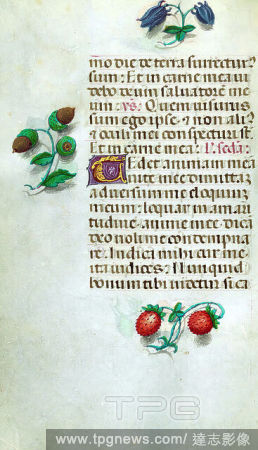 mo die de terra surrectur?
sum: Et in carne mea vi
debo deum salvatorē me
um. vs: Quem visurus
sum ego ipse: et non aliꝰ
et oculi mei conspecturi st̄.
Et in carne mea: l'. scda:
Tedet animam mea
vite mee dimittā
adversum me eloquiū
meum: loquar in amari
tudine anime mee: dicā
deo noli me condempna
re: Indica mihi cur me
ita iudices: Nunquid
bonum tibi videtur si ca
TPG
www.tpgnews.com/ 達志影像